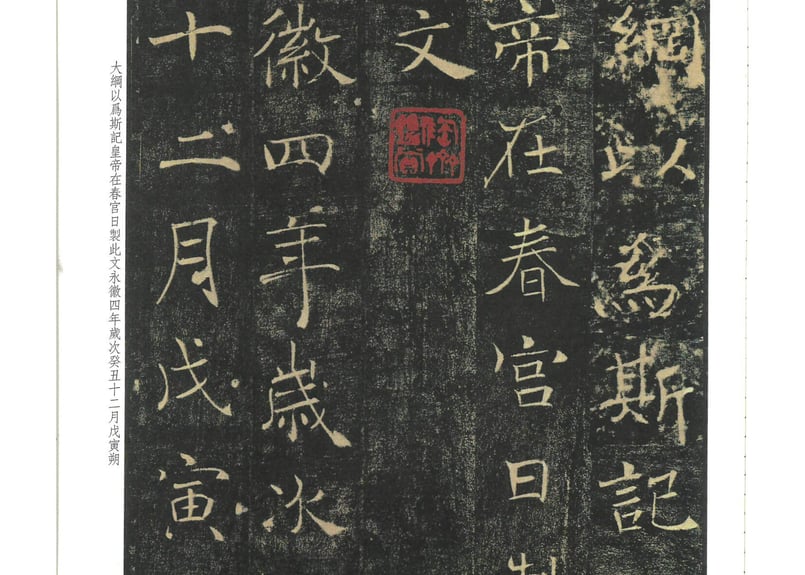 綱以爲斯記
帝在春宮日製
文
徽四年歲次
十二月戊寅
大綱以爲斯記皇帝在春宮日製此文永徽四年歲次癸丑十二月戊寅朔